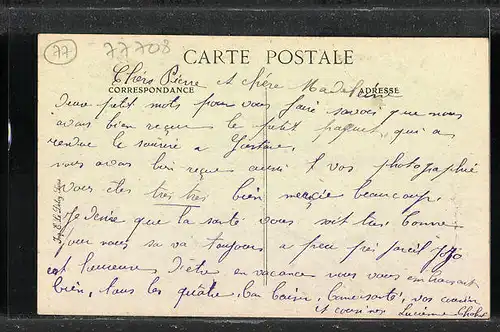 77
77708
CARTE POSTALE
CORRESPONDANCE
ADRESSE
Chers Pierre et chère Madeleine
Deux petit mots pour vous faire savoir que nous
avons bien reçue le petit paquet, qui a
rendue le sourire a
nous avons bien reçue aussi vos photographie
vous êtes très très bien mercie beaucoup.
Je desire que la santé vous soit très bonne
pour nous sa va toujours a peu près pareil Jojo
est heureuse d'être en vacance nous vous embrassant
bien, tous les quatre, bon baiser, bonne santé, vos cousin
et cousines Lucienne